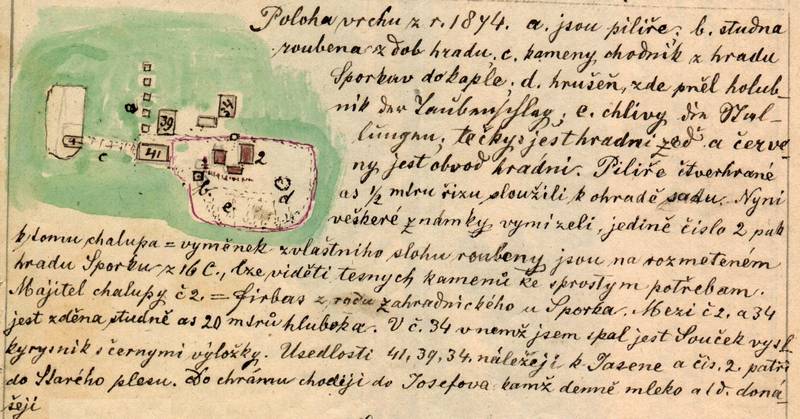 Poloha vrchu z r. 1874. a. jsou pilíře. b. studna
roubena z dob hradu. c. kameny chodník z hradu
Sporkův do kaple. d. hrušěň, zde pněl holub-
nik der Taubenschlag, e. chlivy die Stal-
lungen, tečky jest hradní zeď a červe-
ny jest obvod hradni. Pilíře čtverhrané
as 1/2 mtru řizu sloužili k ohradě sadu. Nyni
veškeré známky vymizeli, jedině číslo 2 pak
k tomu chalupa = vyměnek zvlaštniho slohu roubeny jsou na rozmeteném
hradu Sporku z 16 C., lze viděti tesnych kamenů ke sprostym potřebam.
Majitel chalupy č 2. = Firbas z rodu zahradnického u Sporka. Mezi č 2, a 34
jest zděna studně as 20 mtrů hluboka. V č. 34 v nemž jsem spal jest Souček vysl.
kyrysnik s černymi výložky. Usedlosti 41, 39, 34, náležeji k Jasene a čis. 2. patři
do Starého plesu. Do chrámu choději do Josefova kamž denně mleko a t d. doná-
šeji
39
34
41
2
a
c
b
e
d